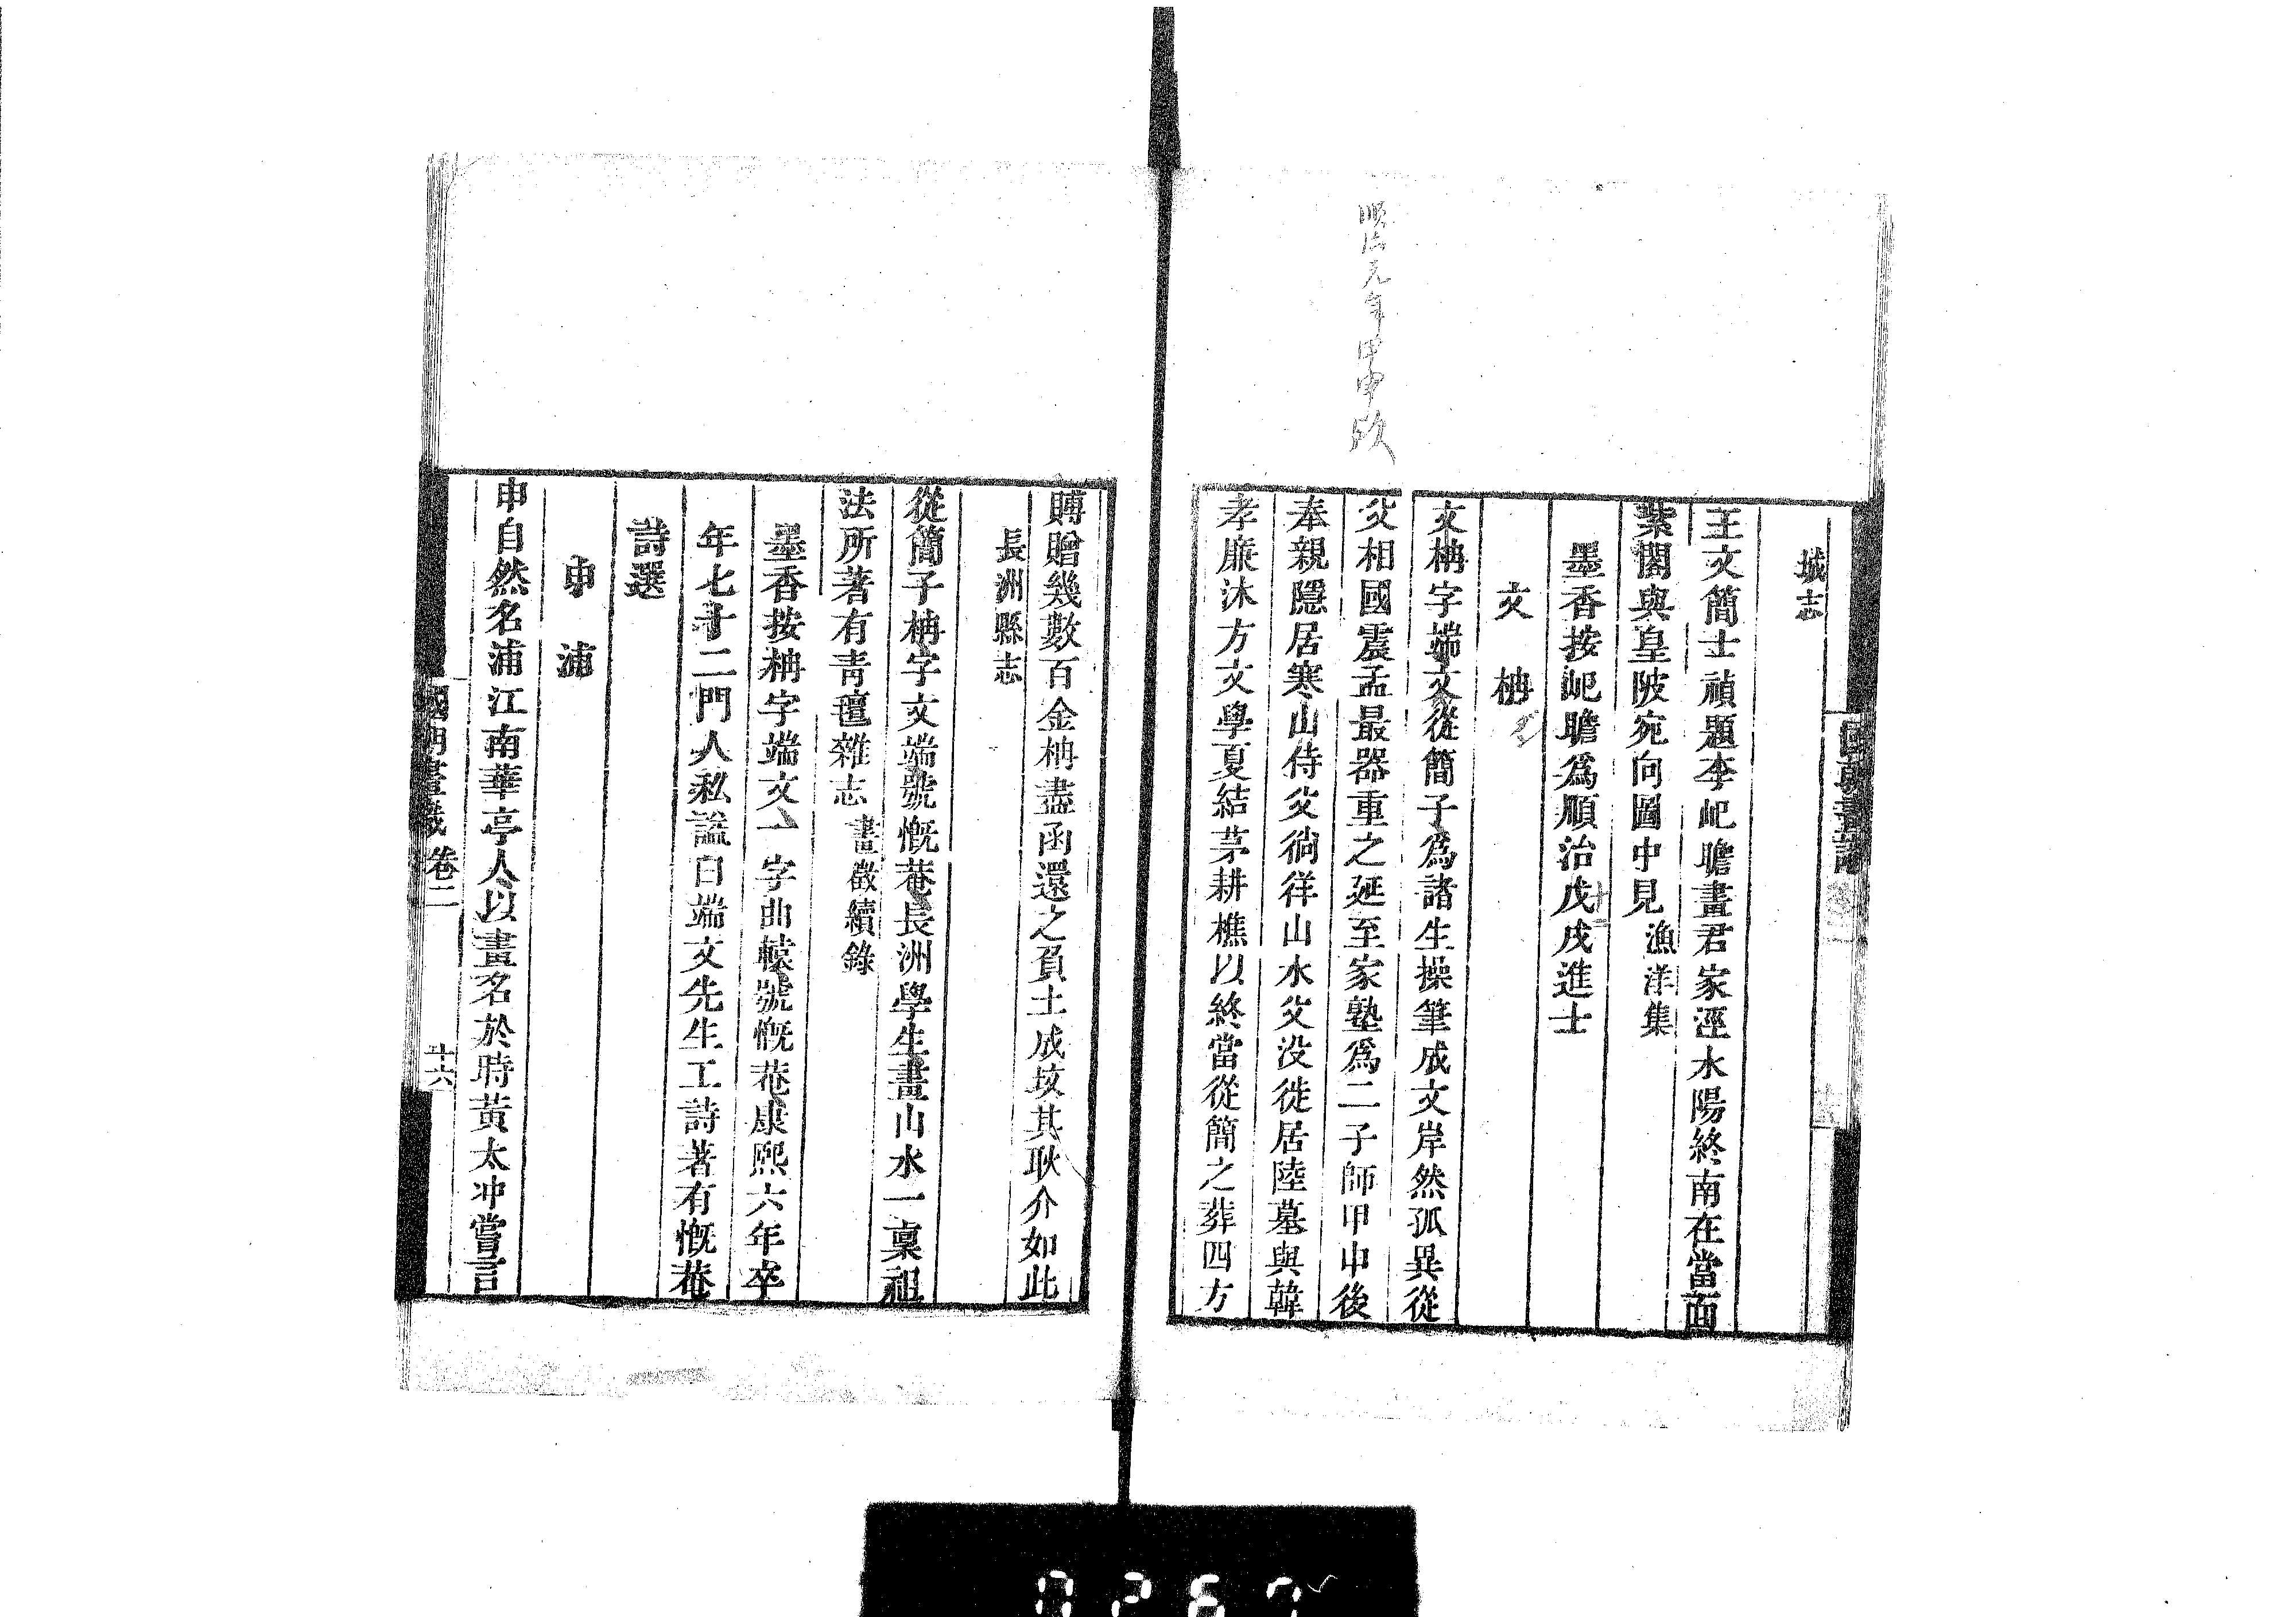 順治元年甲申
城志
王文簡士禎題李屺瞻畫君家涇水陽終南在當面
紫閣與皇陂宛向圖中見漁洋集
墨香按屺瞻爲順治戊戌進士
文 柟
文柟字端文從簡子爲諸生操筆成文岸然孤異從
父相國震孟最器重之延至家塾爲二子師甲申後
奉親隱居寒山侍父徜徉山水父没徙居陸墓與韓
孝廉沐方文學夏結茅耕樵以終當從簡之葬四方
賻贈幾數百金柟盡函還之負土成垓其耿介如此
長洲縣志
從簡子柟字文端號慨菴長洲學生畫山水一稟祖
法所著有青氊雜志畫徵續錄
墨香按柟字端文一字曲轅號慨菴康熙六年卒
年七十二門人私謚曰端文先生工詩著有慨菴
詩選
申 浦
申自然名浦江南華亭人以畫名於時黃太冲嘗言
國朝畫識 卷二 十六
0267